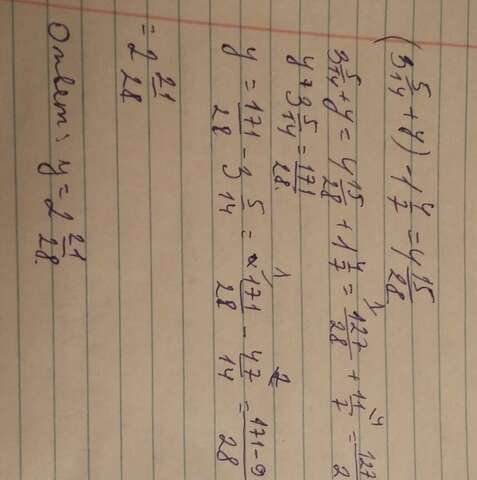 (3 5/14 + y) - 1 4/7 = 4 15/28
3 5/14 + y = 4 15/28 + 1 4/7 = 127/28 + 11/7 = 127
y + 3 5/14 = 171/28.
y = 171/28 - 3 5/14 = 171/28 - 47/14 = 171-9/28
= 2 21/28
Ответ: y = 2 21/28.